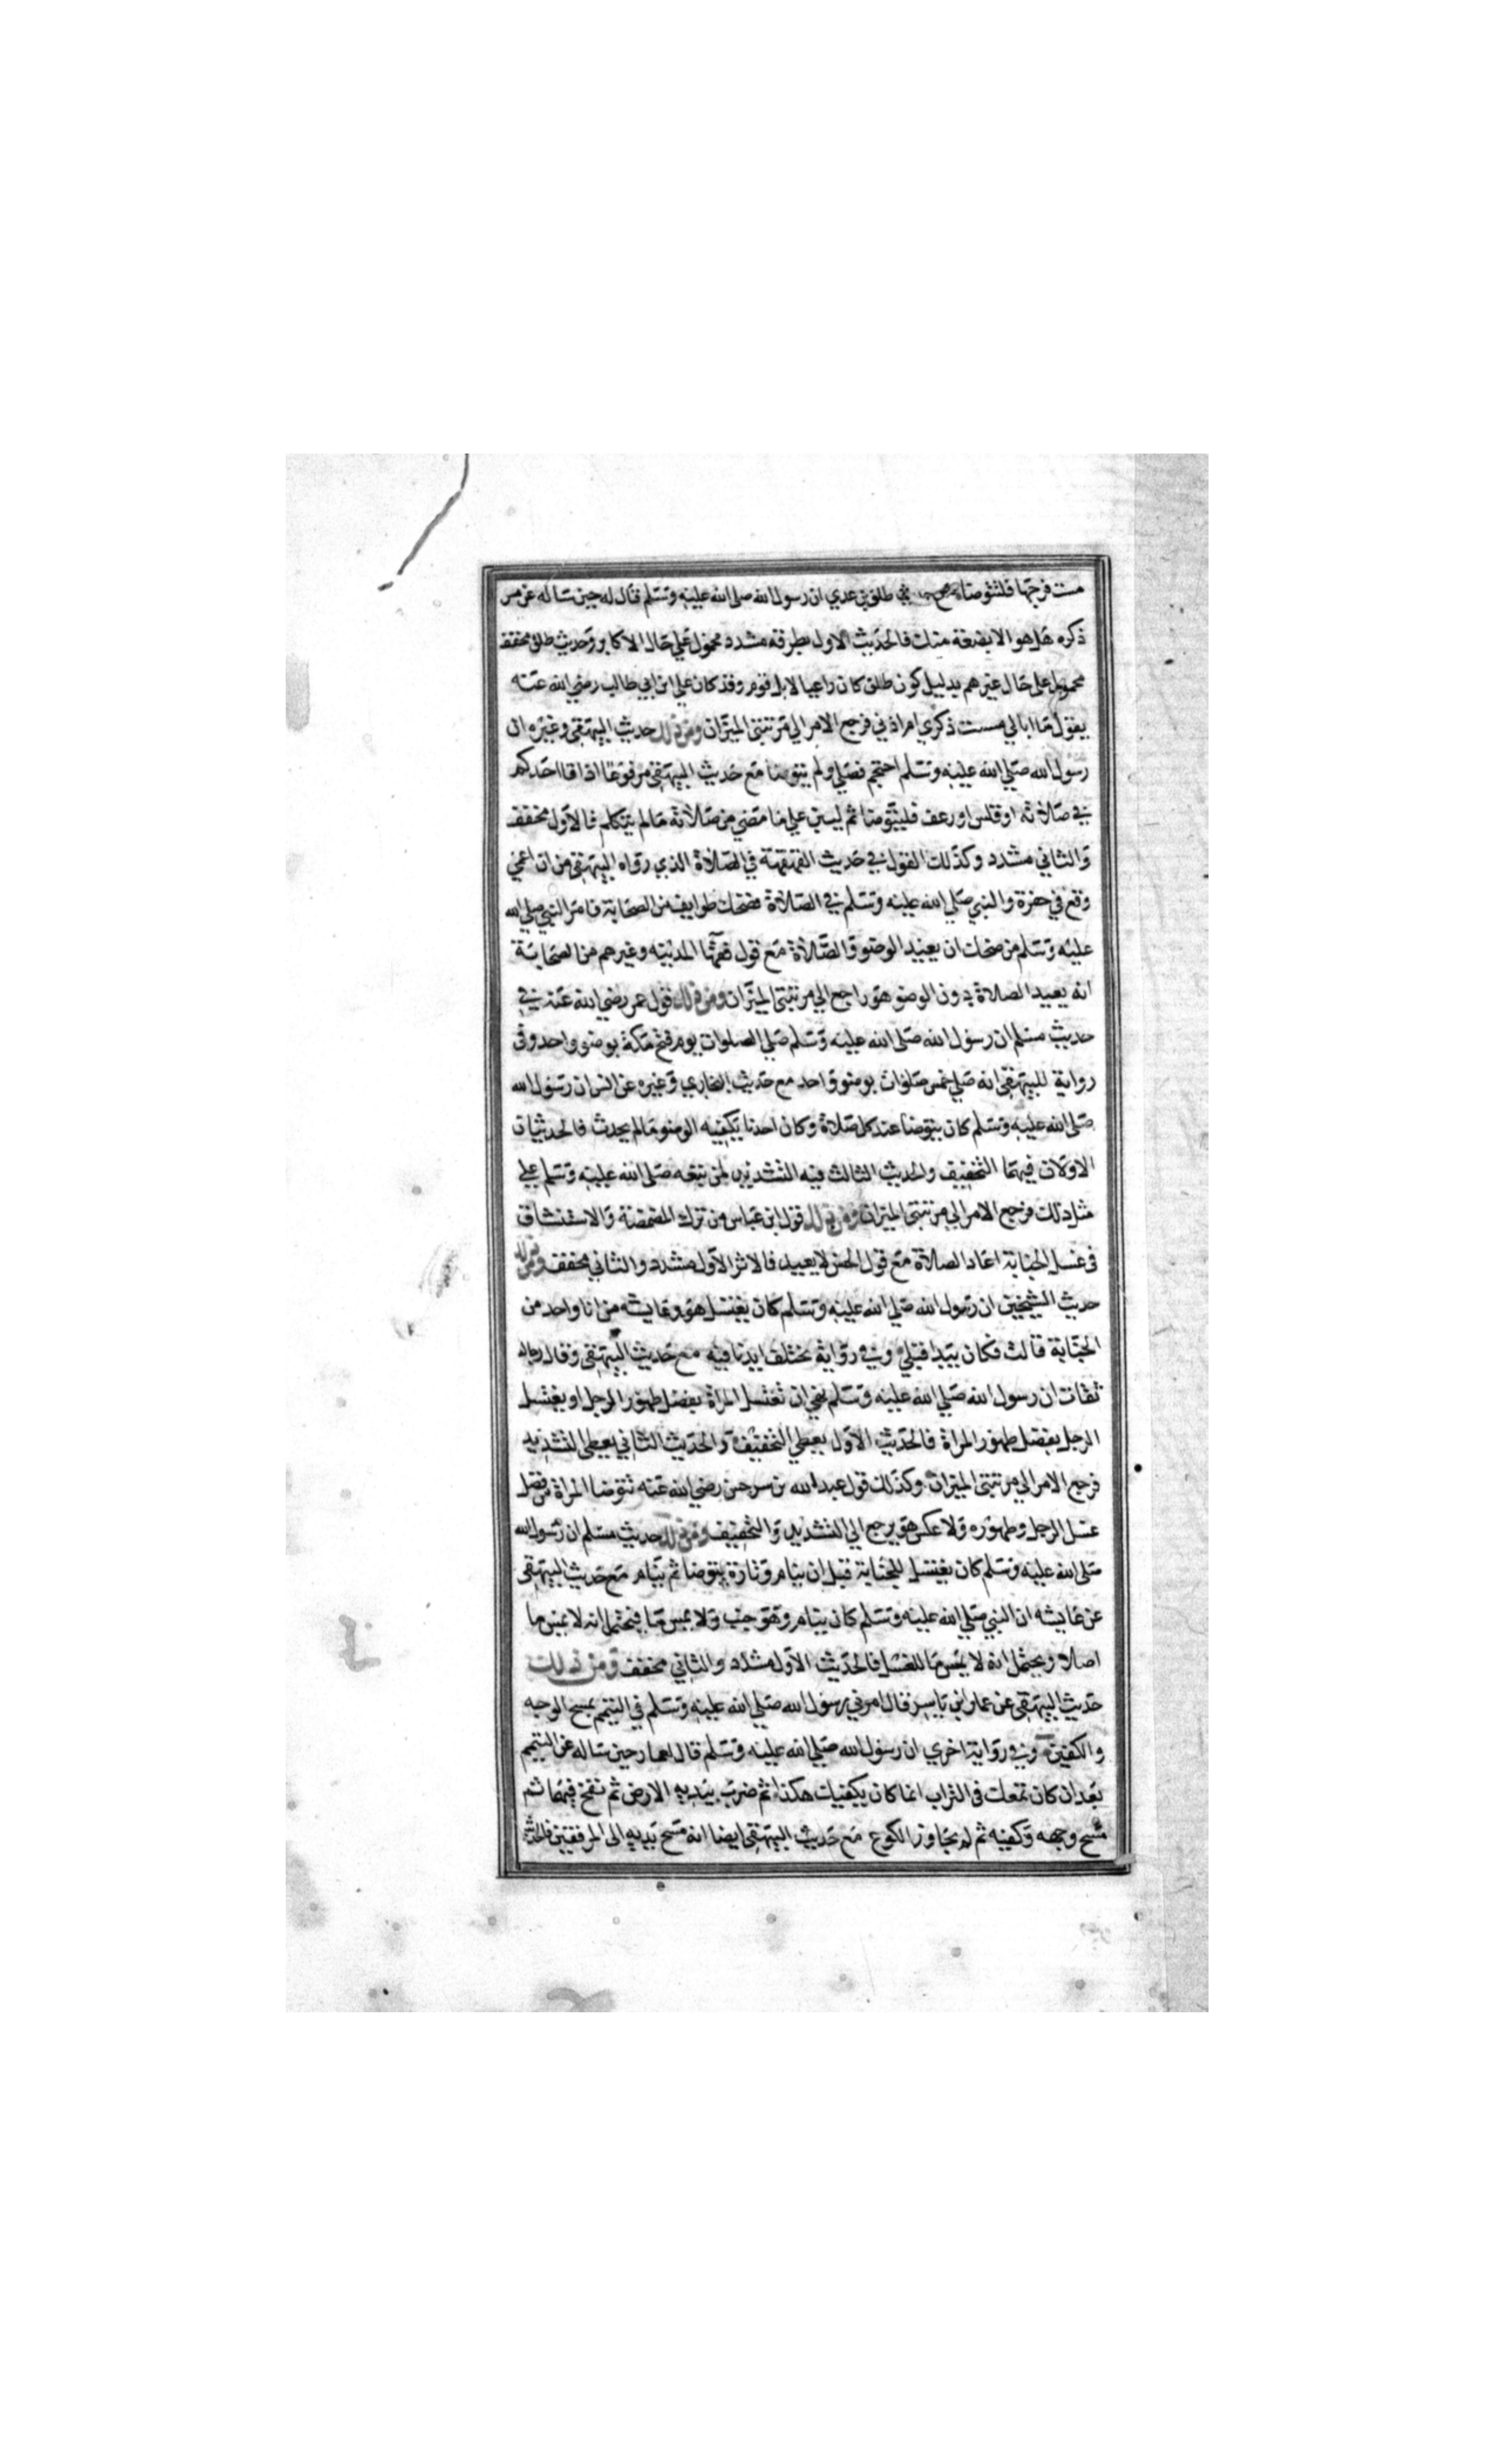 مست فرجها فلتتوضا مع حديث طلق بن عدي ان رسول الله صلى الله عليه وسلم قال له حين ساله عن مس
ذكره هل هو الا بضعة منك فالحديث الاول بطرقه مشدد محمول علي حال الاكابر وحديث طلق مخفف
محمول على حال غيرهم بدليل كون طلق كان راعيا لابل قومه وقد كان علي ابن ابي طالب رضي الله عنه
يقول ما ابالي مسست ذكري ام اذني فرجع الامر الي مرتبتي الميزان ومن ذلك حديث البيهقي وغيره ان
رسول الله صلي الله عليه وسلم احتجم فصلي ولم يتوضا مع حديث البيهقي مرفوعا اذا قا احدكم
في صلاته او قلس او رعف فليتوضا ثم ليبن علي ما مضي من صلاته مالم يتكلم فالاول مخفف
والثاني مشدد وكذلك القول في حديث القهقهة في الصلاة الذي رواه البيهقي من ان اعمي
وقع في حفرة والنبي صلي الله عليه وسلم في الصلاة فضحك طوايف من الصحابة فامر النبي صلي الله
عليه وسلم من ضحك ان يعيد الوضو والصلاة مع قول فقهآ المدينه وغيرهم من الصحابة
انه يعيد الصلاة دون الوضو هو راجع الي مرتبتي الميزان ومن ذلك قول عمر رضي الله عنه في
حديث مسلم ان رسول الله صلى الله عليه وسلم صلي الصلوات يوم فتح مكة بوضو واحد وفي
رواية للبيهقي انه صلي خمس صلوات بوضو واحد مع حديث البخاري وغيره عن انس ان رسول الله
صلى الله عليه وسلم كان يتوضا عند كل صلاة وكان احدنا يكفيه الوضو مالم يحدث فالحديثان
الاولان فيهما التخفيف والحديث الثالث فيه التشديد لمن تبعه صلى الله عليه وسلم علي
مثل ذلك فرجع الامر الي مرتبتي الميزان ومن ذلك قول ابن عباس من ترك المضمضة والاستنشاق
في غسل الجنابة اعاد الصلاة مع قول الحسن لا يعيد فالاثر الاول مشدد والثاني مخفف ومن ذلك
حديث الشيخين ان رسول الله صلي الله عليه وسلم كان يغتسل هو وعايشه من انا واحد من
الجنابة قالت فكان يبدا قبلي وفي رواية تختلف ايدنا فيه مع حديث البيهقي وقال رجاله
ثقات ان رسول الله صلي الله عليه وسلم نهي ان تغتسل المراة بفضل طهور الرجل او يغتسل
الرجل بفضل طهور المراة فالحديث الاول يعطي التخفيف والحديث الثاني يعطي التشديد
فرجع الامر الي مرتبتي الميزان وكذلك قول عبد الله بن سرجس رضي الله عنه تتوضا المراة من فضل
غسل الرجل وطهوره ولا عكس هو يرجع الي التشديد والتخفيف ومن ذلك حديث مسلم ان رسول الله
صلى الله عليه وسلم كان يغتسل للجنابة قبل ان ينام وتارة يتوضا ثم ينام مع حديث البيهقي
عن عايشه ان النبي صلي الله عليه وسلم كان ينام وهو جنب ولا يمس ما فيحتمل انه لا يمس ما
اصلا ويحتمل انه لا يمس ما للغسل فالحديث الاول مشدد والثاني مخفف ومن ذلك
حديث البيهقي عن عمار ابن ياسر قال امرني رسول الله صلي الله عليه وسلم في التيمم بمسح الوجه
والكفين وفي رواية اخري ان رسول الله صلي الله عليه وسلم قال لعمار حين ساله عن التيمم
بعد ان كان تمعك في التراب انما كان يكفيك هكذا ثم ضرب بيديه الارض ثم نفخ فيهما ثم
مسح وجهه وكفيه ثم لم يجاوز الكوع مع حديث البيهقي ايضا انه مسح يديه الى المرفقين فالحديث